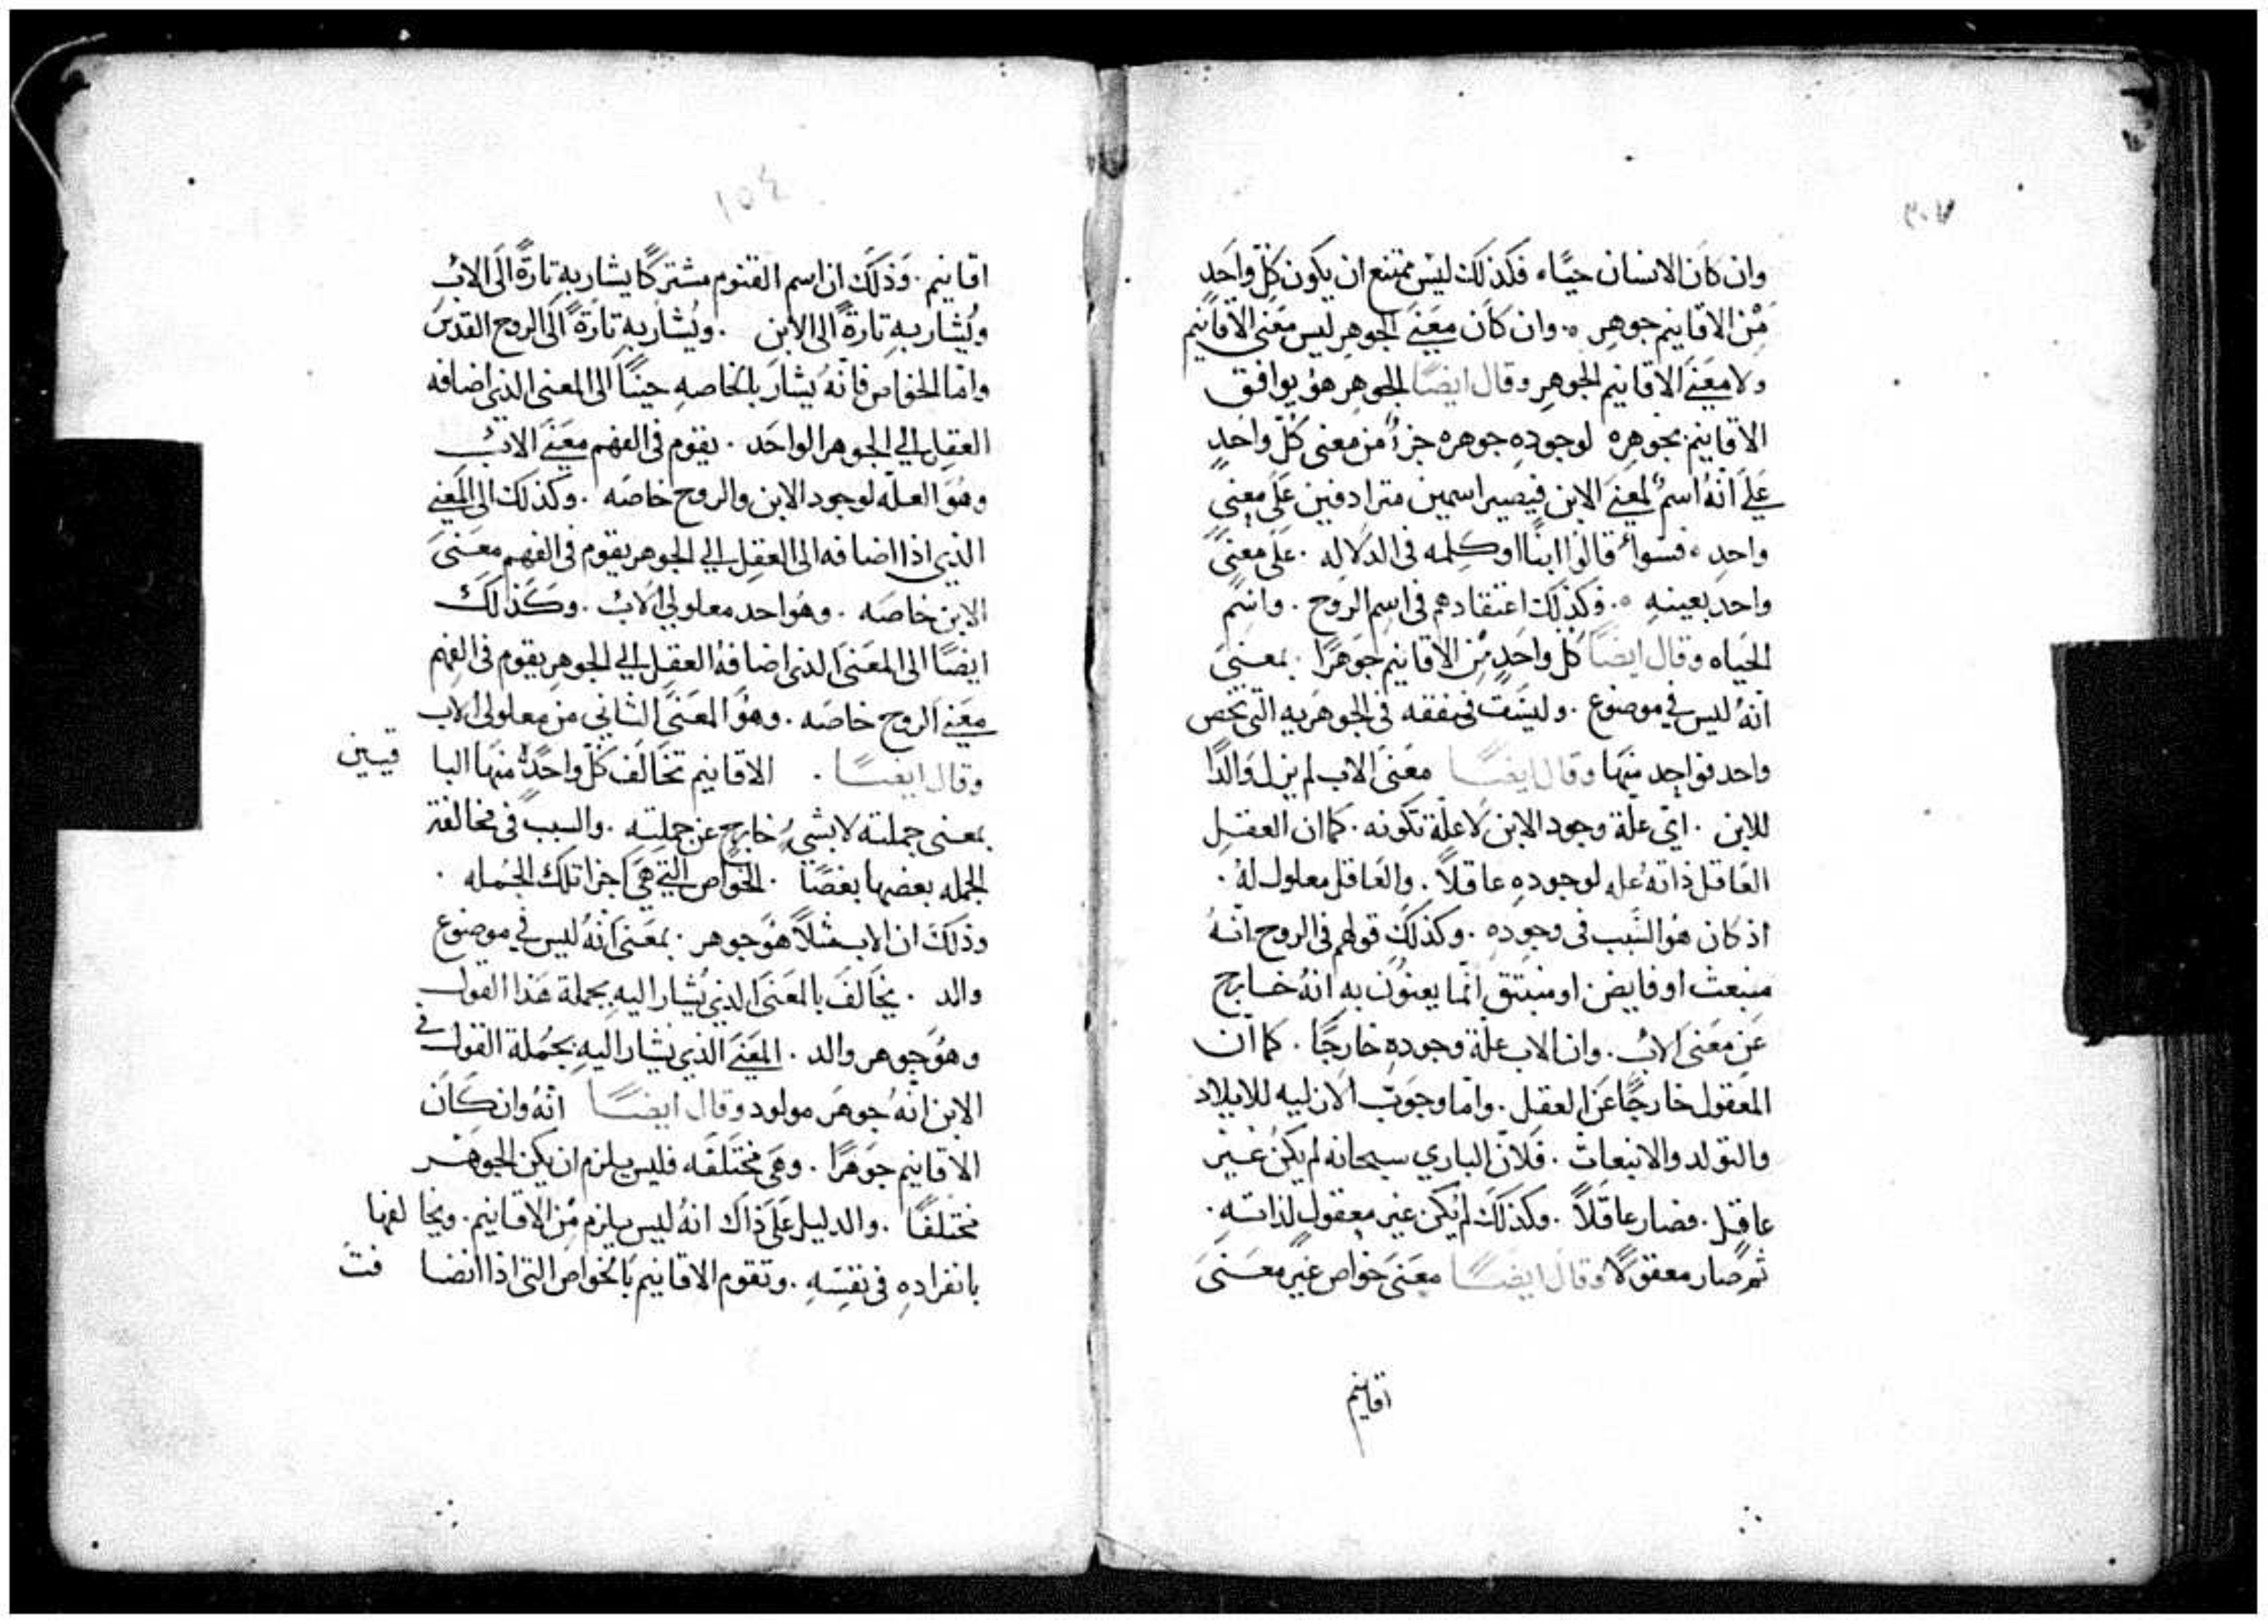 ٣٠٧
وان كان الانسان حيًا، فكذلك ليس ممتنع ان يكون كل واحدٍ
من الاقانيم جوهر ٥. وان كان معنى الجوهر ليس معنى الاقانيم
ولا معنى الاقانيم الجوهر وقال ايضًا الجوهر هو يوافق
الاقانيم بجوهره لوجوده جوهره جزأ من معنى كلّ واحدٍ
على انه اسمٌ لمعنى الابن فيصير اسمين مترادفين على معنى
واحدٍ ، فسواءٌ قالوا ابنًا او كلمه في الدلاله . على معنى
واحد بعينهِ ٥. وكذلك اعتقادهم في اسم الروح . واسم
الحياه وقال ايضًا كل واحدٍ من الاقانيم جوهرًا . بمعنى
انهُ ليس في موضوع . وليست في متفقه في الجوهريه التي تخص
واحد فواحد منها وقال ايضًا معنى الاب لم يزل والدًا
للابن . اي علة وجود الابن لا علّة تكونه . كما ان العقل
العاقل ذاتهُ عله لوجودهِ عاقلاً . والعاقل معلول لهُ .
اذ كان هو السبب في وجودهِ . وكذلك قولهم في الروح انهُ
منبعث او فايض او منبثق انما يعنون به انهُ خارج
عن معنى الاب . وان الاب علة وجودهِ خارجًا . كما ان
المعقول خارجًا عن العقل . وامّا وجوب الازليه للايلاد
والتولد والانبعاث . فلانّ الباري سبحانه لم يكن غير
عاقل . فصار عاقلاً . وكذلك لم يكن غير معقولٍ لذاتهِ .
ثم صار معقولًا وقال ايضًا معنى خواص غير معنى
اقانيم
١٥٤
اقانيم . وذلك ان اسم القنوم مشتركًا يشار بهِ تارةً الى الاب
ويُشار بهِ تارةً الى الابن . ويُشار بهِ تارةً الى الروح القدس
واما الخواص فانهُ يشار بالخاصهِ حينًا الى المعنى الذي اضافه
العقل الى الجوهر الواحد . يقوم في الفهم معنى الاب
وهو العلّه لوجود الابن والروح خاصه . وكذلك الى المعنى
الذي اذا اضافه الى العقل الى الجوهر يقوم في الفهم معنى
الابن خاصه . وهو احد معلولي الاب . وكذلك
ايضًا الى المعنى الذي اضافهُ العقل الى الجوهر يقوم في الفهم
معنى الروح خاصه . وهو المعنى الثاني من معلولي الاب
وقال ايضًا . الاقانيم تخالف كلّ واحدٌ منها البا قيين
بمعنى جملته لا بشيءٍ خارجٍ عن جملتهِ . والسبب في مخالفة
الجمله بعضها بعضًا . الخواص التي هي اجزا تلك الجمله .
وذلك ان الاب مثلاً هو جوهر . بمعنى انهُ ليس في موضوع
والد . يخالف بالمعنى الذي يُشار اليهِ بجملة هذا القول
وهو جوهر والد . المعنى الذي يشار اليهِ بجملة القول في
الابن انهُ جوهر مولود وقال ايضًا انهُ وان كان
الاقانيم جوهرًا . وهي مختلفه فليس يلزم ان يكن الجوهر
مختلفًا . والدليل على ذاك انهُ ليس يلزم من الاقانيم . ويخا لفها
بانفرادهِ في نفسهِ . وتقوم الاقانيم بالخواص التي اذا انضا فت